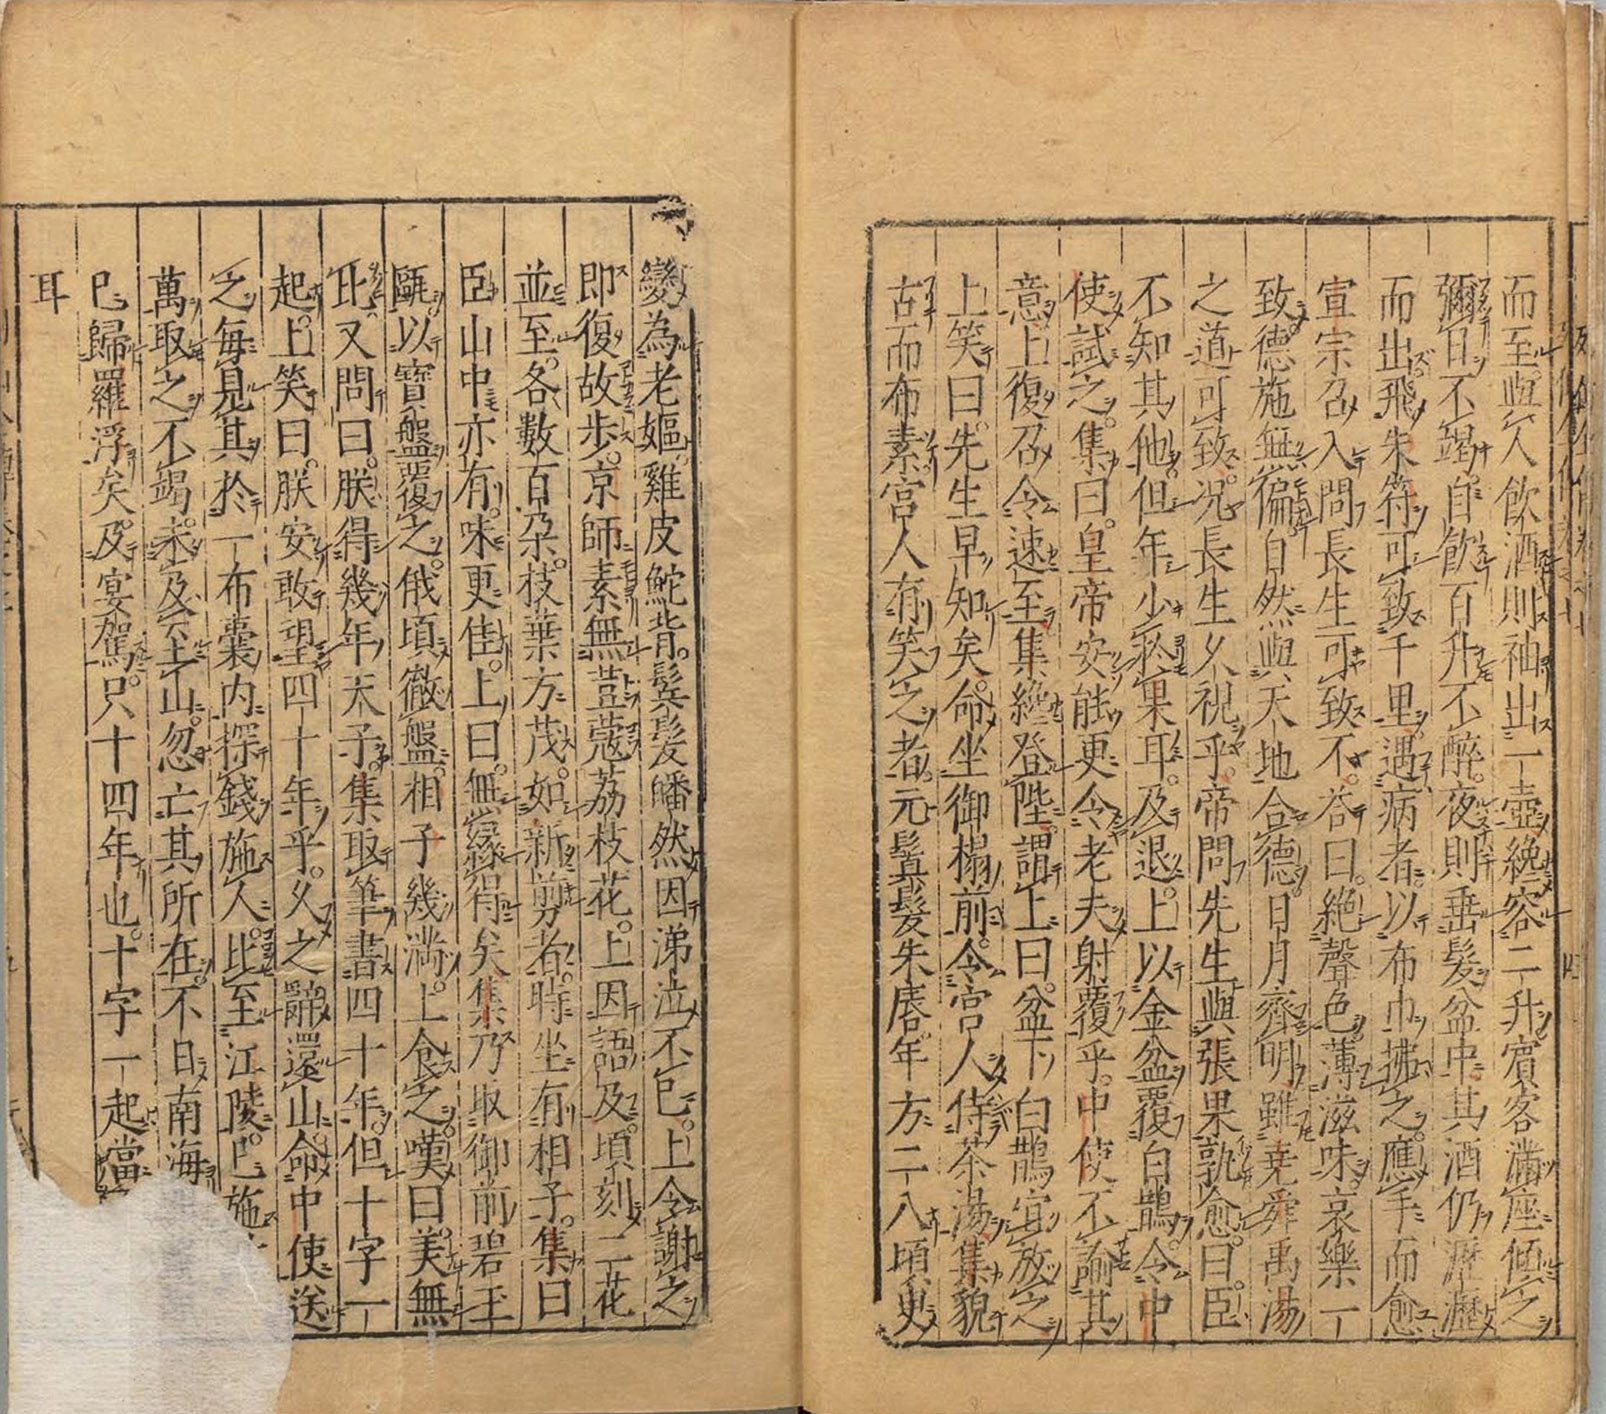 而至與人飲酒則袖出一壺纔容二升賓客滿座傾之
彌日不竭自飲百升不醉夜則垂髮盆中其酒仍瀝瀝
而出飛朱符可致千里遇病者以布巾拂之應手而愈
宣宗召入問長生可致不荅曰絕聲色薄滋味哀樂一
致德施無偏自然與天地合德日月齊明雖堯舜禹湯
之道可致况長生久視乎帝問先生與張果孰愈曰臣
不知其他但年少於果耳及退上以金盆覆白鵲令中
使試之集曰皇帝安能更令老夫射覆乎中使不諭其
意上復召令速至集纔登陛謂上曰盆下白鵲宜放之
上笑曰先生早知矣命坐御榻前令宮人侍茶湯集貌
古而布素宮人有笑之者元鬒髮朱唇年方二八頃臾
變為老嫗雞皮鮀背鬢髮皤然因涕泣不已上令謝之
即復故步京師素無荳蔻荔枝花上因語及頃刻二花
並至各數百朶枝葉方茂如新剪者時坐有相子集曰
臣山中亦有味更佳上曰無緣得矣集乃取御前碧玉
甌以寶盤覆之俄頃徹盤相子幾滿上食之嘆曰美無
比又問曰朕得幾年天子集取筆書四十年但十字一
起上笑曰朕安敢望四十年乎久之辭還山命中使送
之每見其於一布囊内探錢施人比至江陵已施
萬取之不竭未及至山忽亡其所在不日南海
已歸羅浮矣及宴駕只十四年也十字一起當
耳